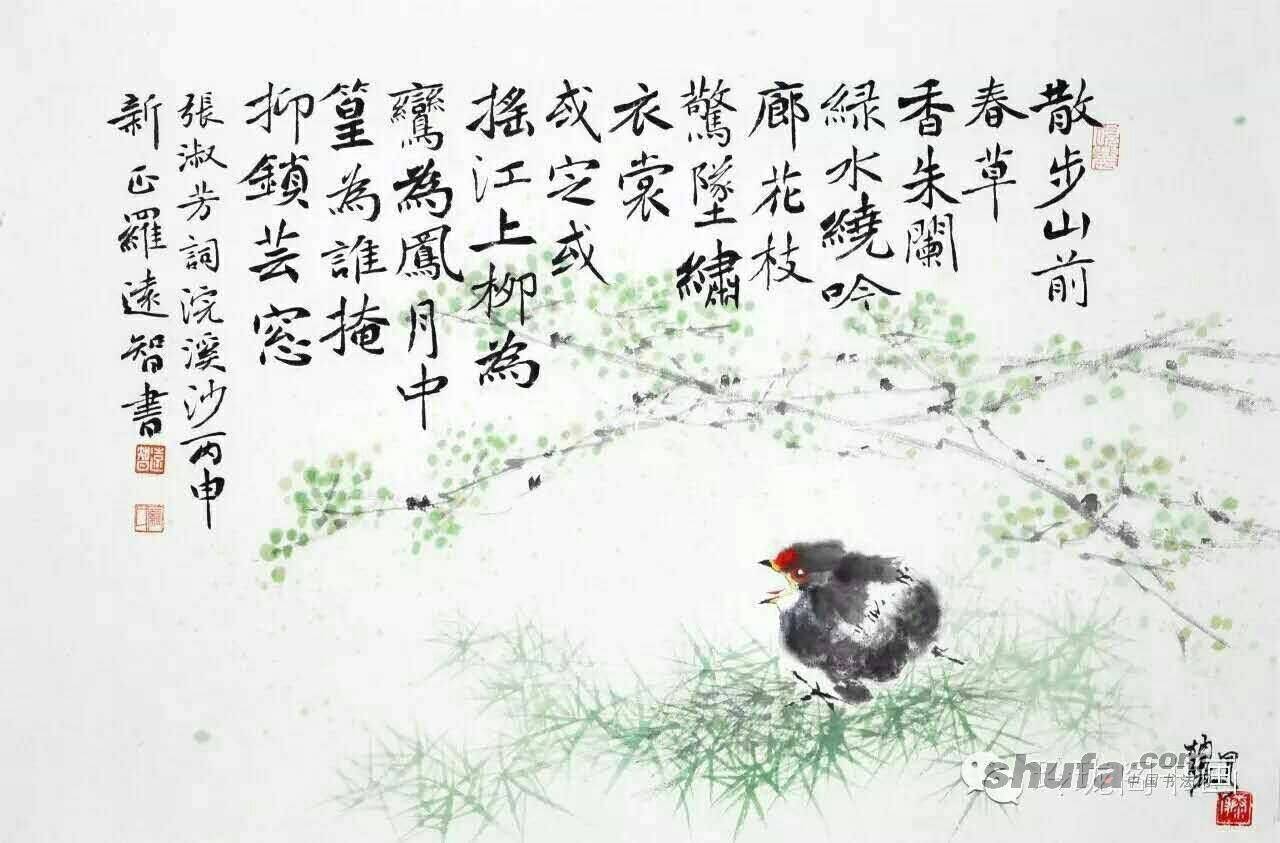 散步山前
春草
香朱闌
緑水繞吟
廊花枝
驚墜繡
衣裳
或定或
搖江上柳為
鸞為鳳月中
篁為誰掩
抑鎖芸窓
張淑芳詞浣溪沙丙申
新正羅遠智書
遠智
shufa.com
中国书法